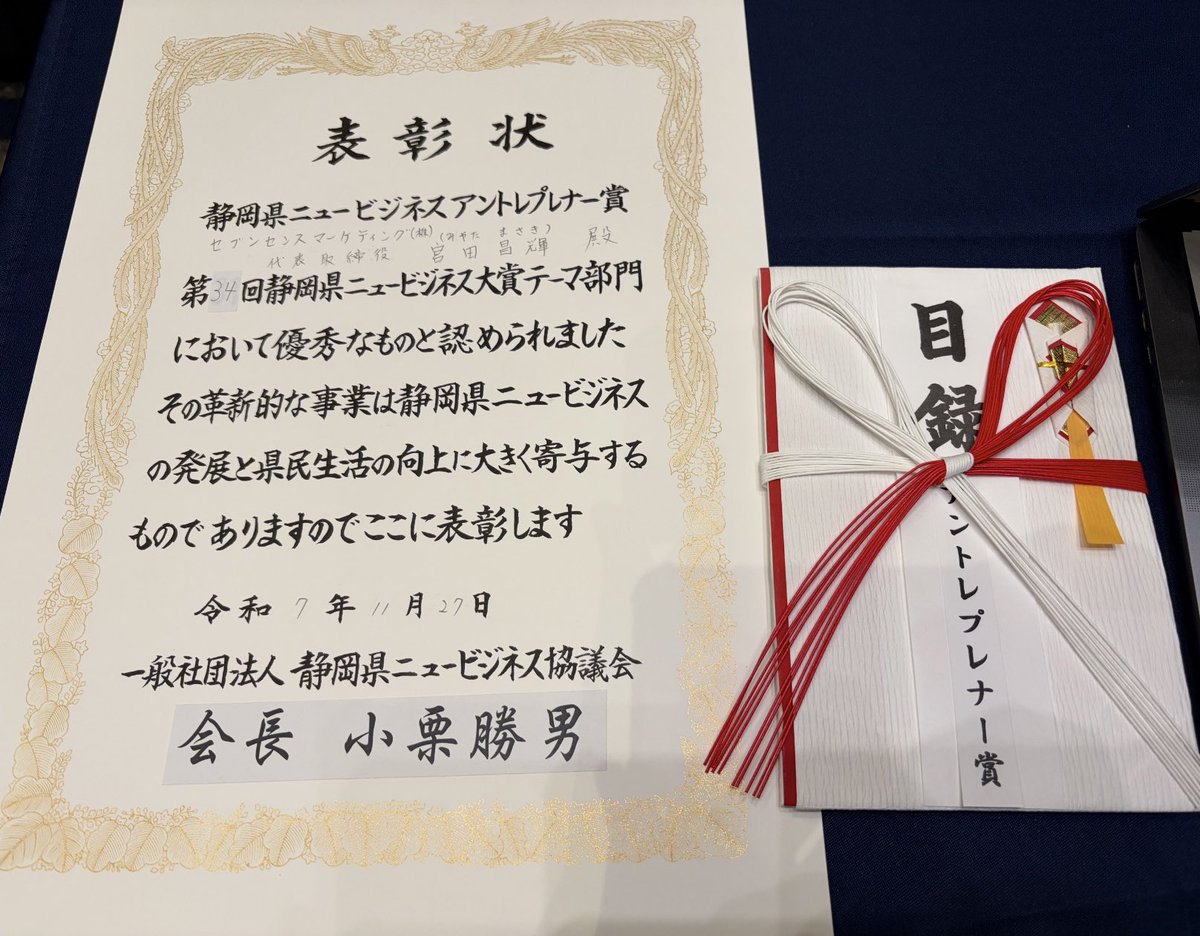 表彰状
静岡県ニュービジネスアントレプレナー賞
セブンセンスマーケティング(株)(みやた まさき)
代表取締役 宮田昌輝 殿
第34回静岡県ニュービジネス大賞テーマ部門
において優秀なものと認められました
その革新的な事業は静岡県ニュービジネス
の発展と県民生活の向上に大きく寄与する
ものでありますのでここに表彰します
令和7年11月27日
一般社団法人 静岡県ニュービジネス協議会
会長 小栗勝男
目録
アントレプレナー賞